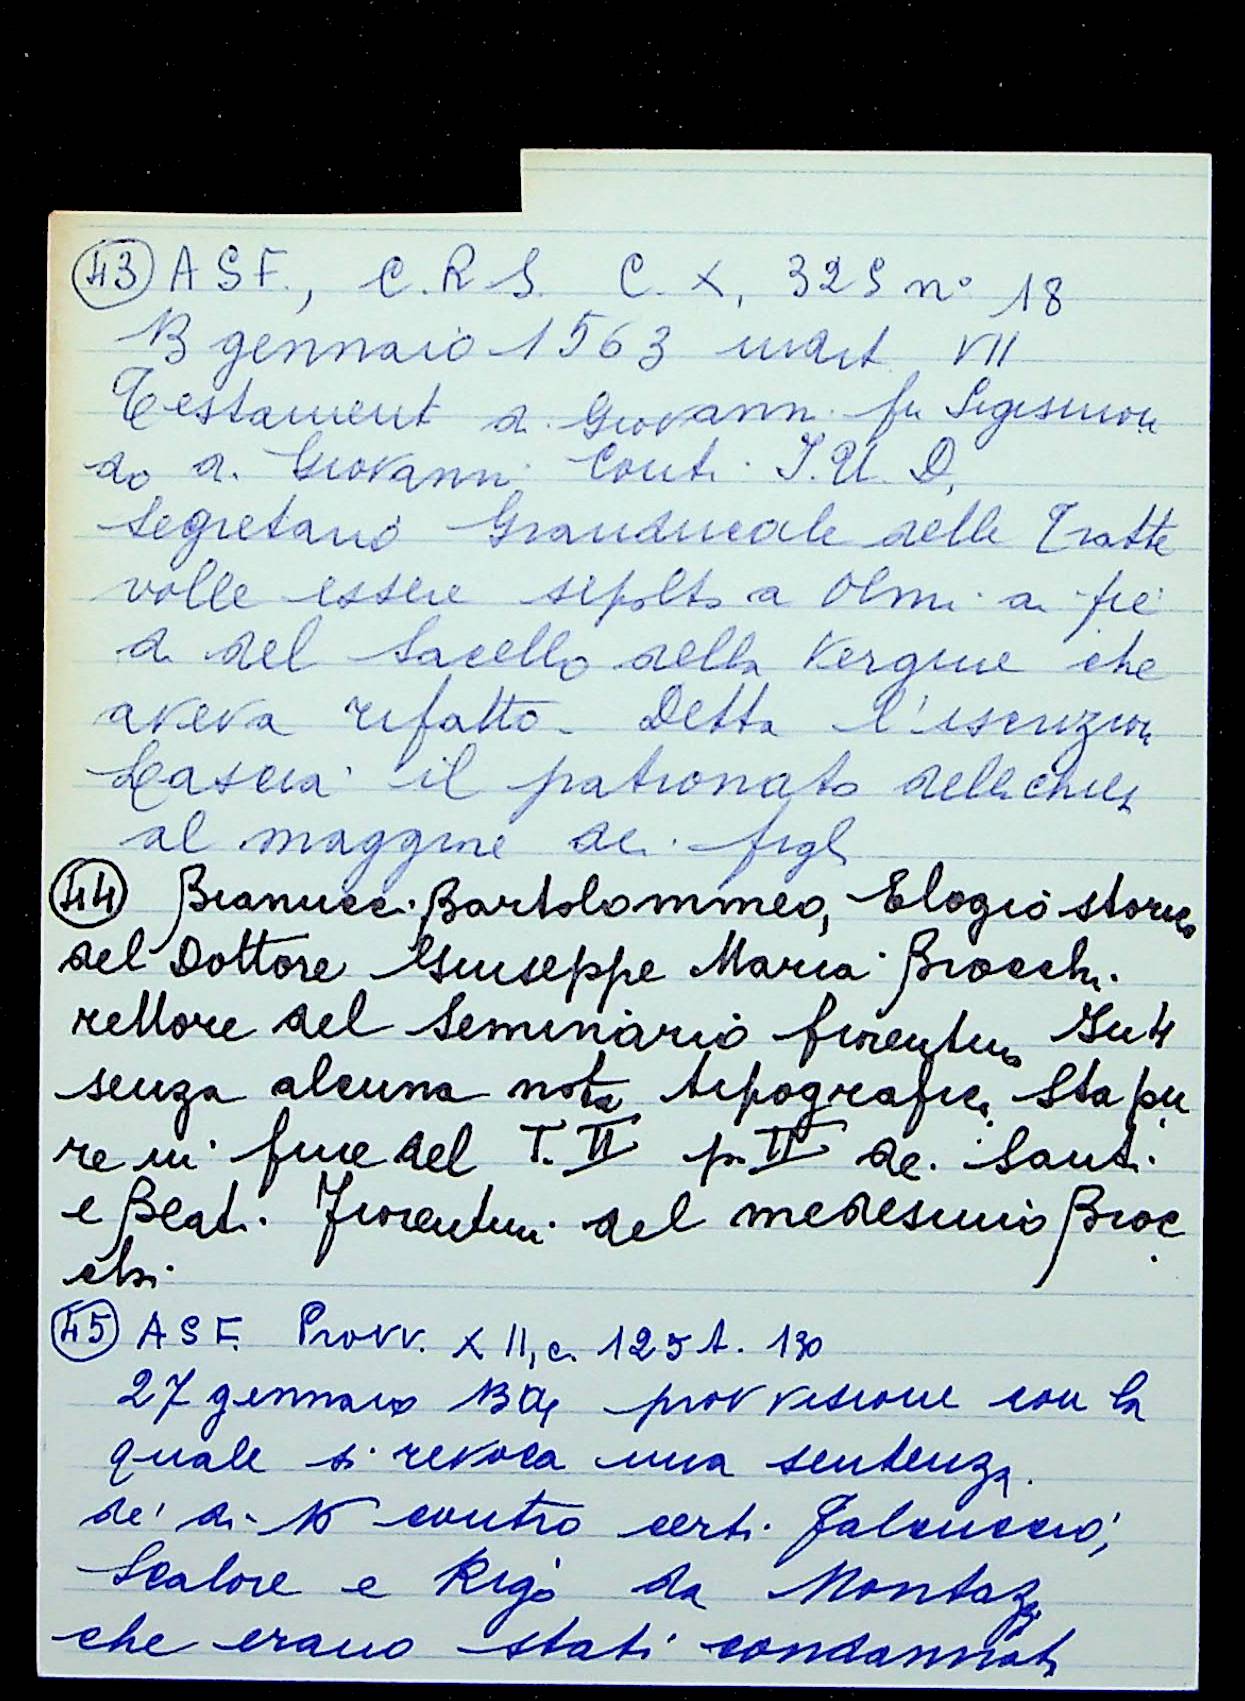 43) A S F., C. R. S. C. X, 325 n° 18
13 gennaio 1563 indict VII
Testament di Giovann. fu Sigismon
do di Giovanni Conti J. U. D.
Segretario Granducale delle Tratte
volle essere sepolto a Olmi a piè
di del Sacello della Vergine che
aveva rifatto. Detta l'iscrizion
Lascia il patronato della chiesa
al maggiore dei figli
44) Bianucci Bartolommeo, Elogio storico
del Dottore Giuseppe Maria Brocchi
rettore del Seminario fiorentino In 4
senza alcuna nota tipografica Sta pu
re in fine del T. II p. II dei Santi
e Beati Fiorentini del medesimo Broc
chi.
45) A S F. Provv. XII, c. 125 t. 130
27 gennaio provvisione con la
quale si revoca una sentenza
de' di 16 contro certi Falcuccio,
Scalore e Rigo da
che erano stati condannati